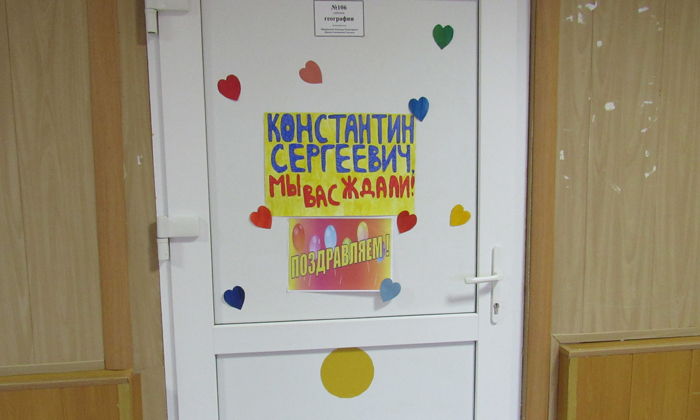 №106
география
КОНСТАНТИН
СЕРГЕЕВИЧ,
МЫ ВАС ЖДАЛИ!
ПОЗДРАВЛЯЕМ!